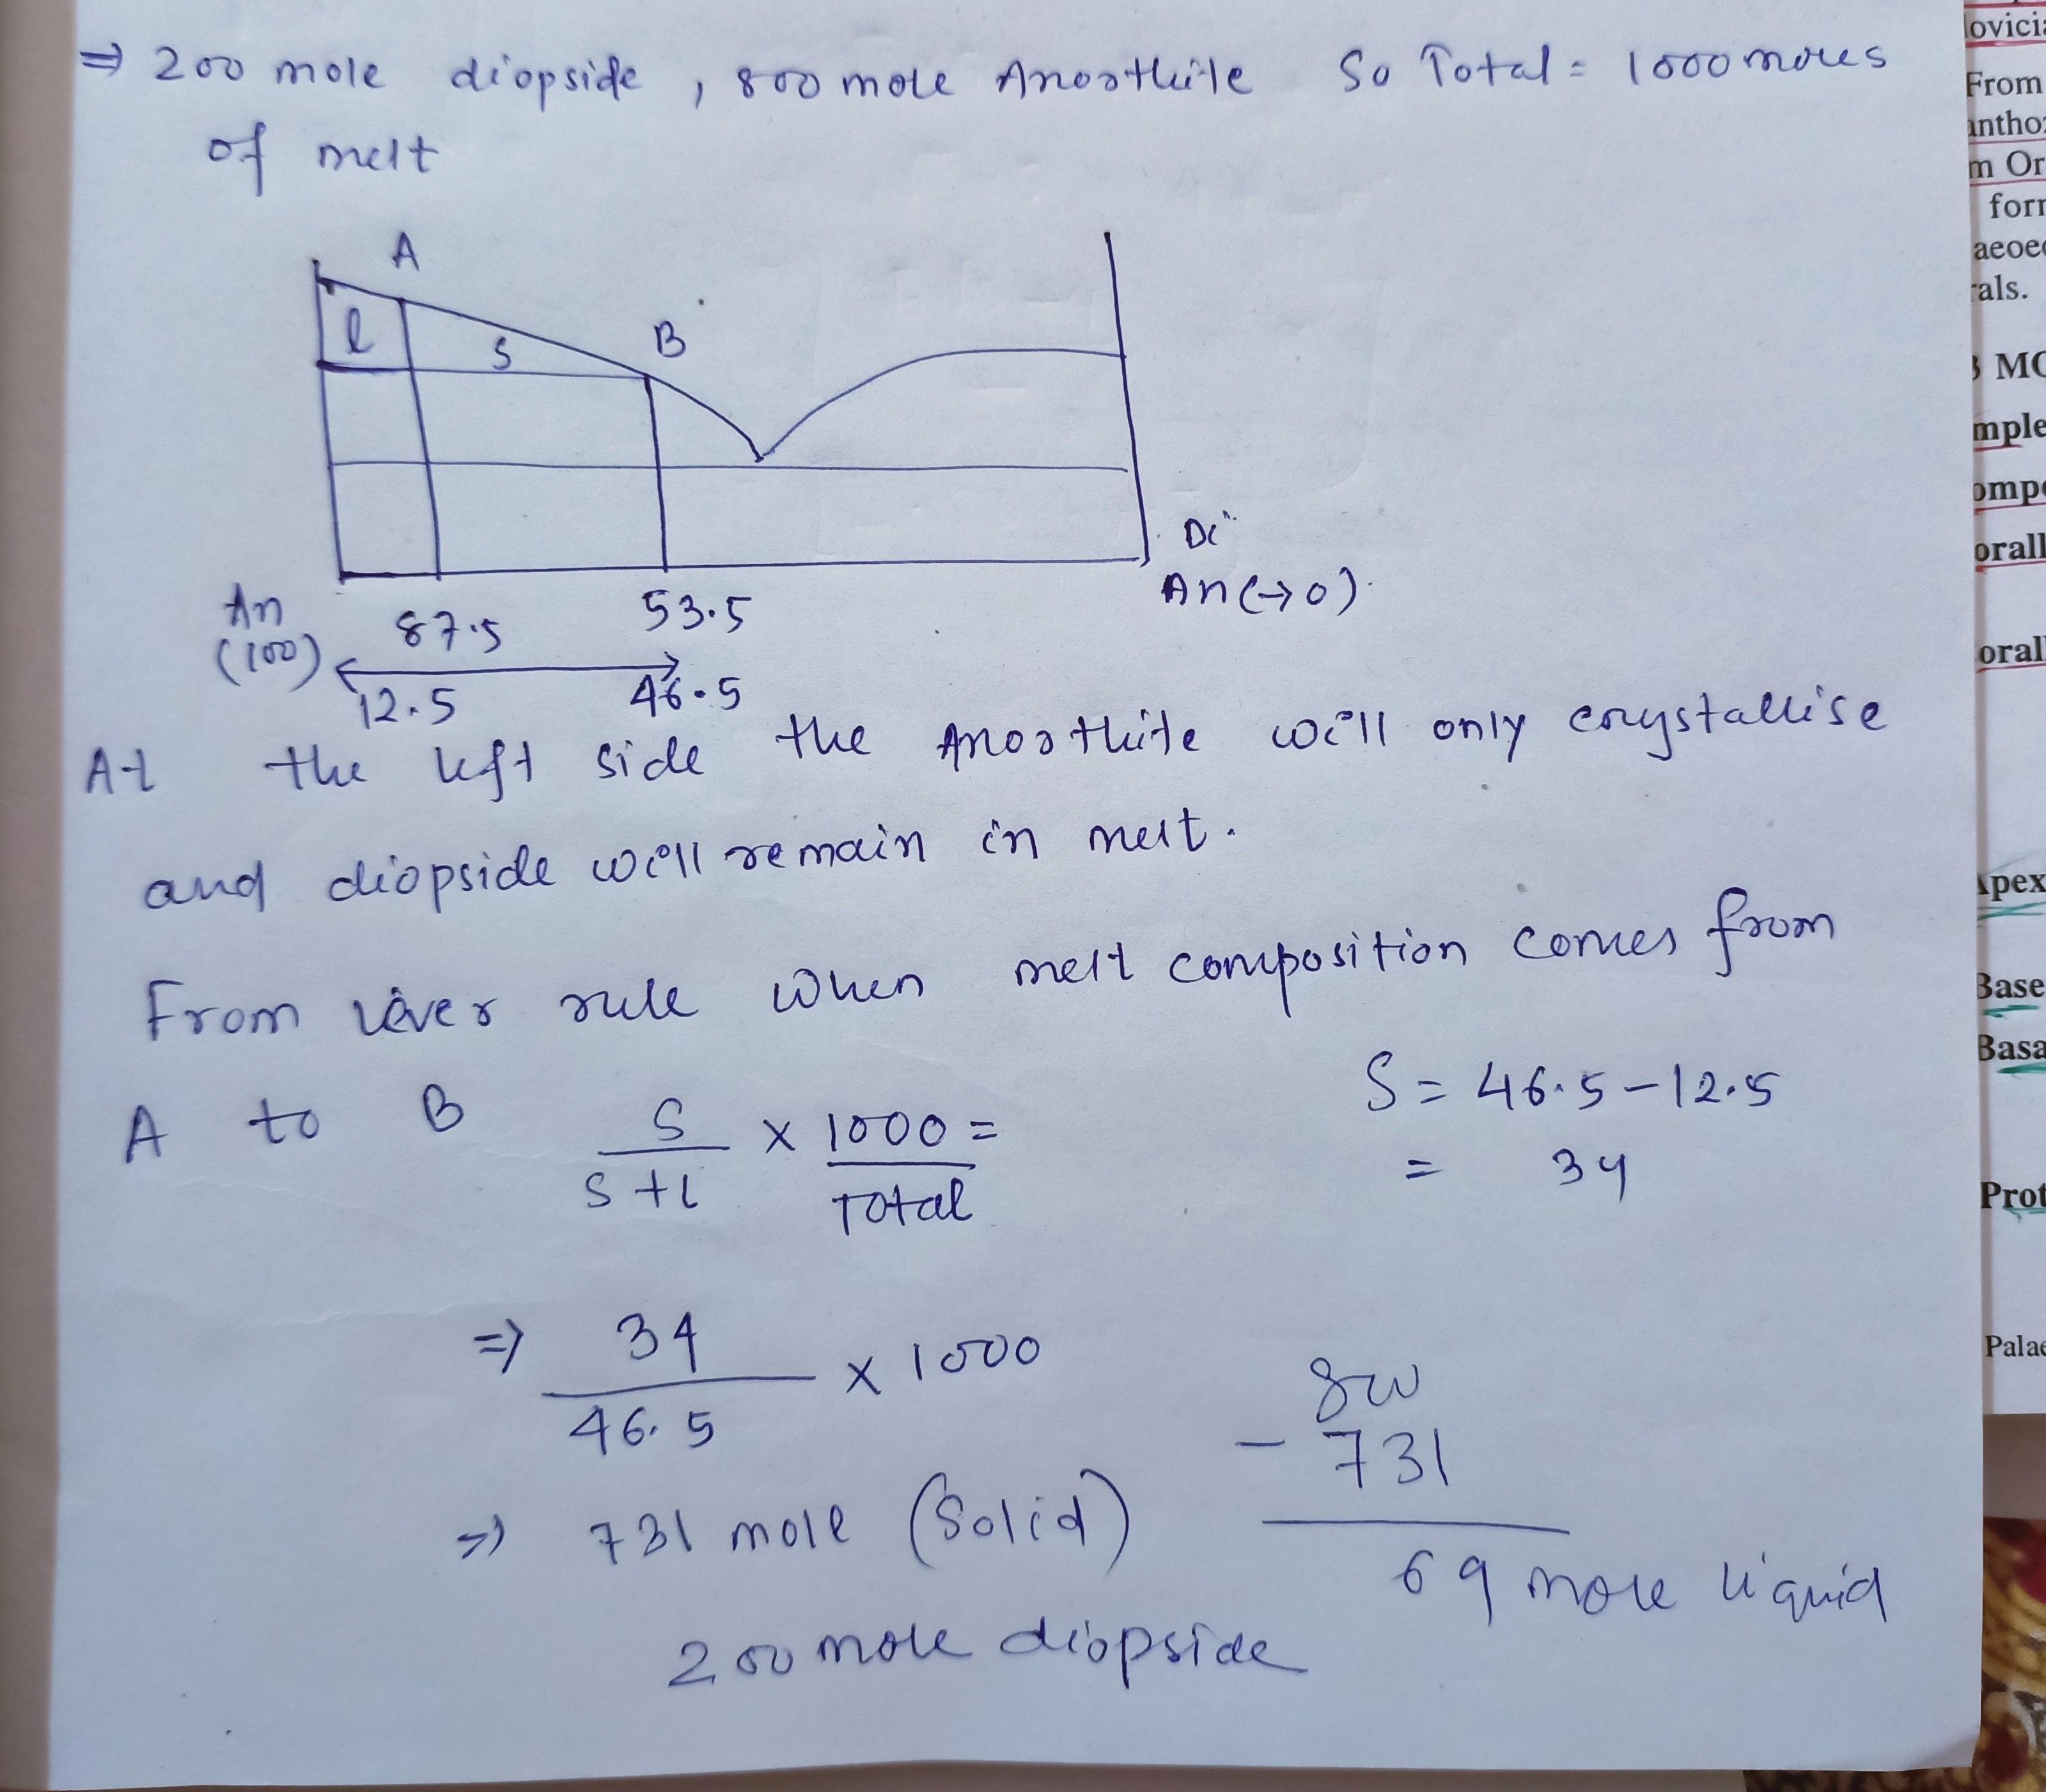 ⇒ 200 mole diopside , 800 mole Anorthite So Total = 1000 moles
of melt
A
l
S
B
Di
An (→0)
An
(100)
87.5
53.5
12.5
46.5
At the left side the Anorthite will only crystallise
and diopside will remain in melt.
From lever rule when melt composition comes from
A to B
S/(S+l) × 1000/Total =
S = 46.5 - 12.5
= 34
⇒ 34/46.5 × 1000
⇒ 731 mole (Solid)
800
- 731
69 mole liquid
200 mole diopside
ovici
From
antho
m Or
for
aeoe
als.
MO
mple
omp
orall
oral
Apex
Base
Basa
Prot
Palae